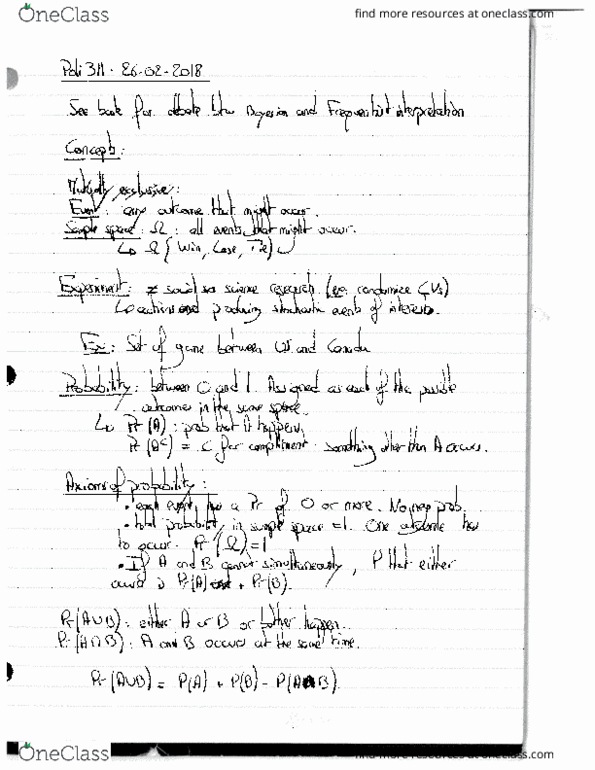 OneClass
find more resources at oneclass.com
Poli 311 - 26-02-2018
See book for debate btw Bayesian and Frequentist interpretation
Concepts:
Mutually exclusive:
Event: any outcome that might occur.
Sample space: Ω: all events that might occur.
↳ Ω { Win, Lose, Tie }
Experiment: ≠ social science research (randomize CVs)
↳ actions producing stochastic events of interests.
Ex: Set of game between US and Canada
Probability: between 0 and 1. Assigned as each of the possible
outcomes in the same space.
↳ Pr(A): prob that it happens
Pr(A^c) = C for compliment. something other than A occurs.
Axioms of probability:
• each event has a Pr of 0 or more. No neg prob.
• total probability in sample space = 1. One outcome has
to occur. Pr(Ω) = 1
• If A and B cannot simultaneously, P that either
occurs is Pr(A) + Pr(B).
Pr(A∪B): either A or B or both happen.
Pr(A∩B): A and B occurs at the same time.
Pr(A∪B) = P(A) + P(B) - P(A∩B).
OneClass
find more resources at oneclass.com